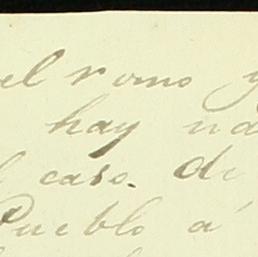 el ramo y
hay na
caso. de
Pueblo á